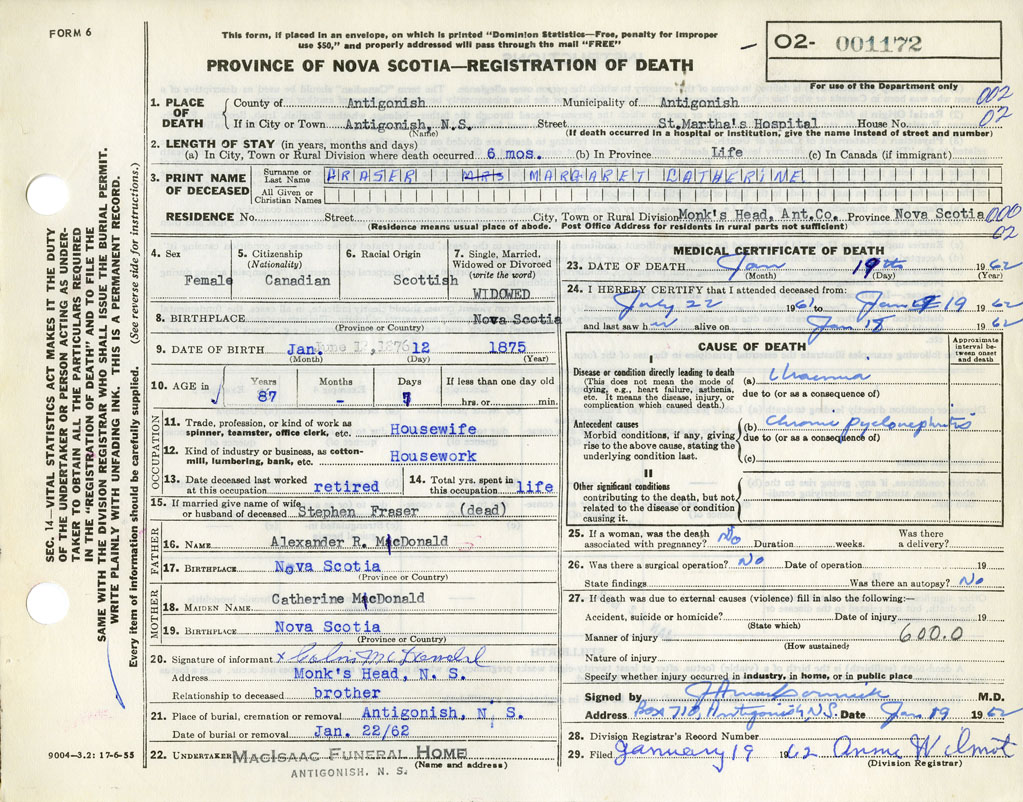 FORM 6
This form, if placed in an envelope, on which is printed "Dominion Statistics—Free, penalty for improper
use $50," and properly addressed will pass through the mail "FREE"
PROVINCE OF NOVA SCOTIA—REGISTRATION OF DEATH
02- 001172
For use of the Department only
002
02
1. PLACE OF DEATH
County of Antigonish Municipality of Antigonish
If in City or Town Antigonish, N.S. Street St.Martha's Hospital House No.
(Name) (If death occurred in a hospital or institution, give the name instead of street and number)
2. LENGTH OF STAY (in years, months and days)
(a) In City, Town or Rural Division where death occurred 6 mos. (b) In Province Life (c) In Canada (if immigrant)
3. PRINT NAME OF DECEASED
Surname or Last Name FRASER MRS MARGARET CATHERINE
All Given or Christian Names
RESIDENCE No. Street City, Town or Rural Division Monk's Head, Ant.Co. Province Nova Scotia 000
02
(Residence means usual place of abode. Post Office Address for residents in rural parts not sufficient)
4. Sex
Female
5. Citizenship
(Nationality)
Canadian
6. Racial Origin
Scottish
7. Single, Married,
Widowed or Divorced
(write the word)
WIDOWED
8. BIRTHPLACE Nova Scotia
(Province or Country)
9. DATE OF BIRTH Jan. June 12, 1876 12 1875
(Month) (Day) (Year)
10. AGE in
Years Months Days If less than one day old
87 - 7 hrs. or min.
OCCUPATION
11. Trade, profession, or kind of work as
spinner, teamster, office clerk, etc. Housewife
12. Kind of industry or business, as cotton-
mill, lumbering, bank, etc. Housework
13. Date deceased last worked
at this occupation retired
14. Total yrs. spent in
this occupation life
15. If married give name of wife
or husband of deceased Stephen Fraser (dead)
FATHER
16. NAME Alexander R. MacDonald
17. BIRTHPLACE Nova Scotia
(Province or Country)
MOTHER
18. MAIDEN NAME Catherine MacDonald
19. BIRTHPLACE Nova Scotia
(Province or Country)
20. Signature of informant x
Address Monk's Head, N. S.
Relationship to deceased brother
21. Place of burial, cremation or removal Antigonish, N. S.
Date of burial or removal Jan. 22/62
22. UNDERTAKER MACISAAC FUNERAL HOME
(Name and address)
ANTIGONISH, N. S.
MEDICAL CERTIFICATE OF DEATH
23. DATE OF DEATH Jan 19th 1962
(Month) (Day) (Year)
24. I HEREBY CERTIFY that I attended deceased from:
July 22 1961 to Jan 19 1962
and last saw her alive on Jan 18 1962
CAUSE OF DEATH
Approximate
interval be-
tween onset
and death
I
Disease or condition directly leading to death
(This does not mean the mode of
dying, e.g., heart failure, asthenia,
etc. It means the disease, injury, or
complication which caused death.)
(a) Uraemia
due to (or as a consequence of)
Antecedent causes
Morbid conditions, if any, giving
rise to the above cause, stating the
underlying condition last.
(b) Chronic Pyelonephritis
due to (or as a consequence of)
(c)
II
Other significant conditions
contributing to the death, but not
related to the disease or condition
causing it.
25. If a woman, was the death
associated with pregnancy? No Duration weeks. Was there
a delivery?
26. Was there a surgical operation? No Date of operation 19
State findings Was there an autopsy? No
27. If death was due to external causes (violence) fill in also the following:—
Accident, suicide or homicide? Date of injury 19
(State which)
Manner of injury 600.0
(How sustained)
Nature of injury
Specify whether injury occurred in industry, in home, or in public place
Signed by M.D.
Address Box 710, Antigonish, N.S. Date Jan 19 1962
28. Division Registrar's Record Number
29. Filed January 19 1962 Anne Wilmot
(Division Registrar)
SEC. 14—VITAL STATISTICS ACT MAKES IT THE DUTY
OF THE UNDERTAKER OR PERSON ACTING AS UNDER-
TAKER TO OBTAIN ALL THE PARTICULARS REQUIRED
IN THE "REGISTRATION OF DEATH" AND TO FILE THE
SAME WITH THE DIVISION REGISTRAR WHO SHALL ISSUE THE BURIAL PERMIT.
WRITE PLAINLY WITH UNFADING INK. THIS IS A PERMANENT RECORD.
Every item of information should be carefully supplied. (See reverse side for instructions.)
9004—3.2: 17-6-55